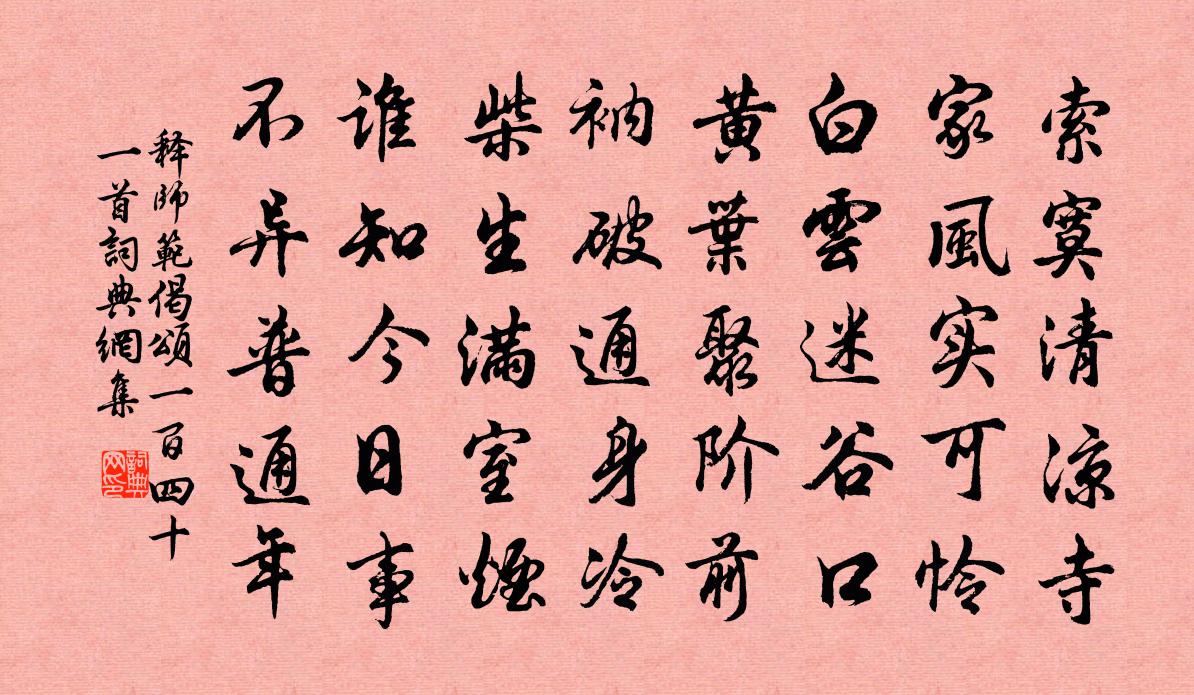 索寞清凉寺
家風实可怜
白雲迷谷口
黄葉聚阶前
衲破通身冷
柴生满室煙
谁知今日事
不异普通年
释師範偈頌一百四十
一首詞典網集
詞典网印